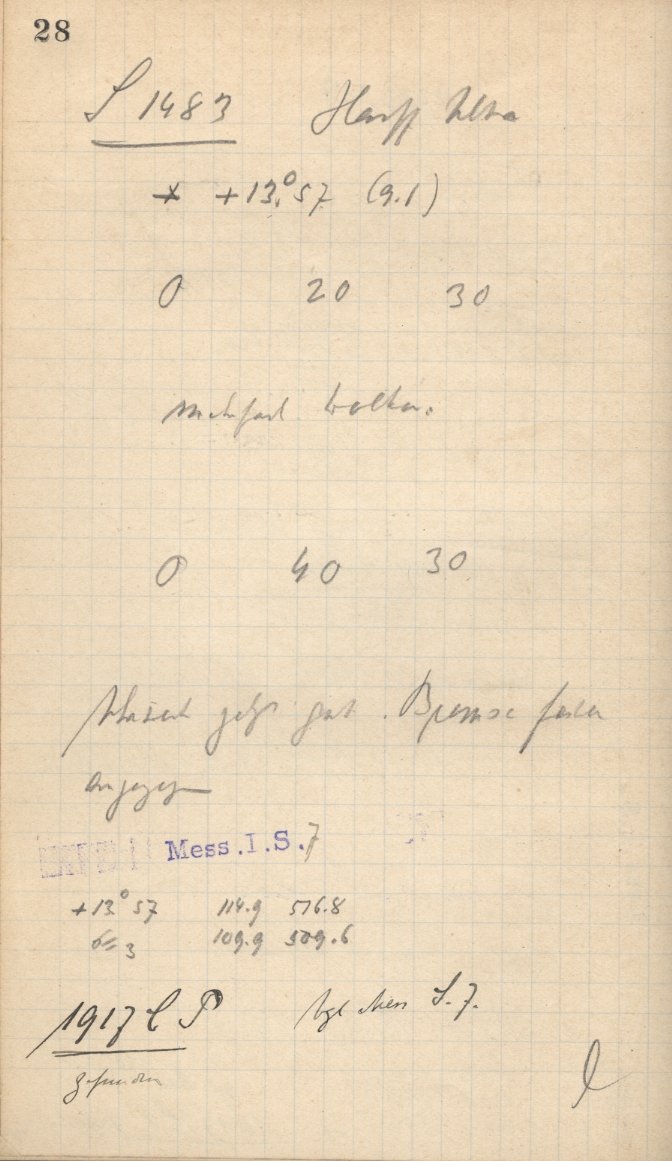 28
S 1483 Hauff Ultra
* +13.°57 (9.1)
0 20 30
mehrfach Wolken.
0 40 30
geht gut. Bremse fester
angezogen
Mess.I.S.7
+13°57 114.9 576.8
3 109.9 509.6
1917 C P vgl Mess S. 7.
gefunden